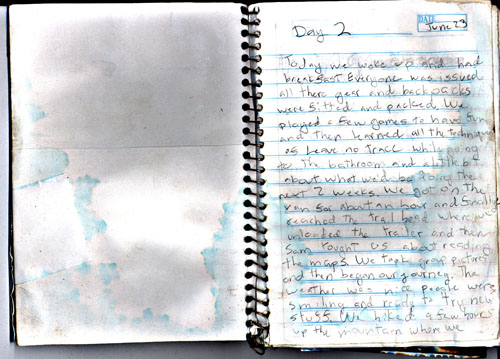 Day 2
DATE June 23
Today we woke up and had
breakfast Everyone was issued
all there gear and backpacks
were fitted and packed. We
played a few games to have fun
and then learned all the techniques
of Leave no Trace while going
to the bathroom and a little bit
about what we'd be doing the
next 2 weeks. We got on the
van for about an hour and finally
reached the trail head where we
unloaded the trailer and then
Sam tought us about reading
the maps. We took group pictures
and then began our journey. The
weather was nice people were
smiling and ready to try new
stuff. We hiked a few hours
up the mountain where we